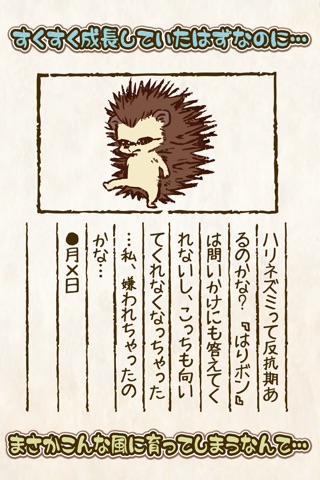 すくすく成長していたはずなのに…
ハリネズミって反抗期あ
るのかな？『はりボン』
は問いかけにも答えてく
れないし、こっちも向い
てくれなくなっちゃった
…私、嫌われちゃったの
かな…
●月×日
まさかこんな風に育ってしまうなんて…